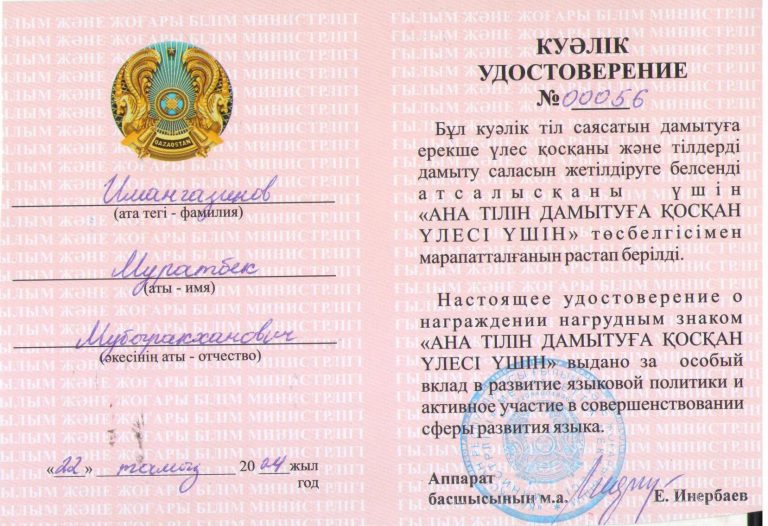 QAZAQSTAN
Имангазинов
(ата тегі - фамилия)
Муратбек
(аты - имя)
Мубаракханович
(әкесінің аты - отчество)
«22» тамыз 2024 жыл
год
КУӘЛІК
УДОСТОВЕРЕНИЕ
№ 00056
Бұл куәлік тіл саясатын дамытуға
ерекше үлес қосқаны және тілдерді
дамыту саласын жетілдіруге белсенді
атсалысқаны үшін
«АНА ТІЛІН ДАМЫТУҒА ҚОСҚАН
ҮЛЕСІ ҮШІН» төсбелгісімен
марапатталғанын растап берілді.
Настоящее удостоверение о
награждении нагрудным знаком
«АНА ТІЛІН ДАМЫТУҒА ҚОСҚАН
ҮЛЕСІ ҮШІН» выдано за особый
вклад в развитие языковой политики и
активное участие в совершенствовании
сферы развития языка.
Аппарат
басшысының м.а. Е. Инербаев
ҒЫЛЫМ ЖӘНЕ ЖОҒАРЫ БІЛІМ МИНИСТРЛІГІ